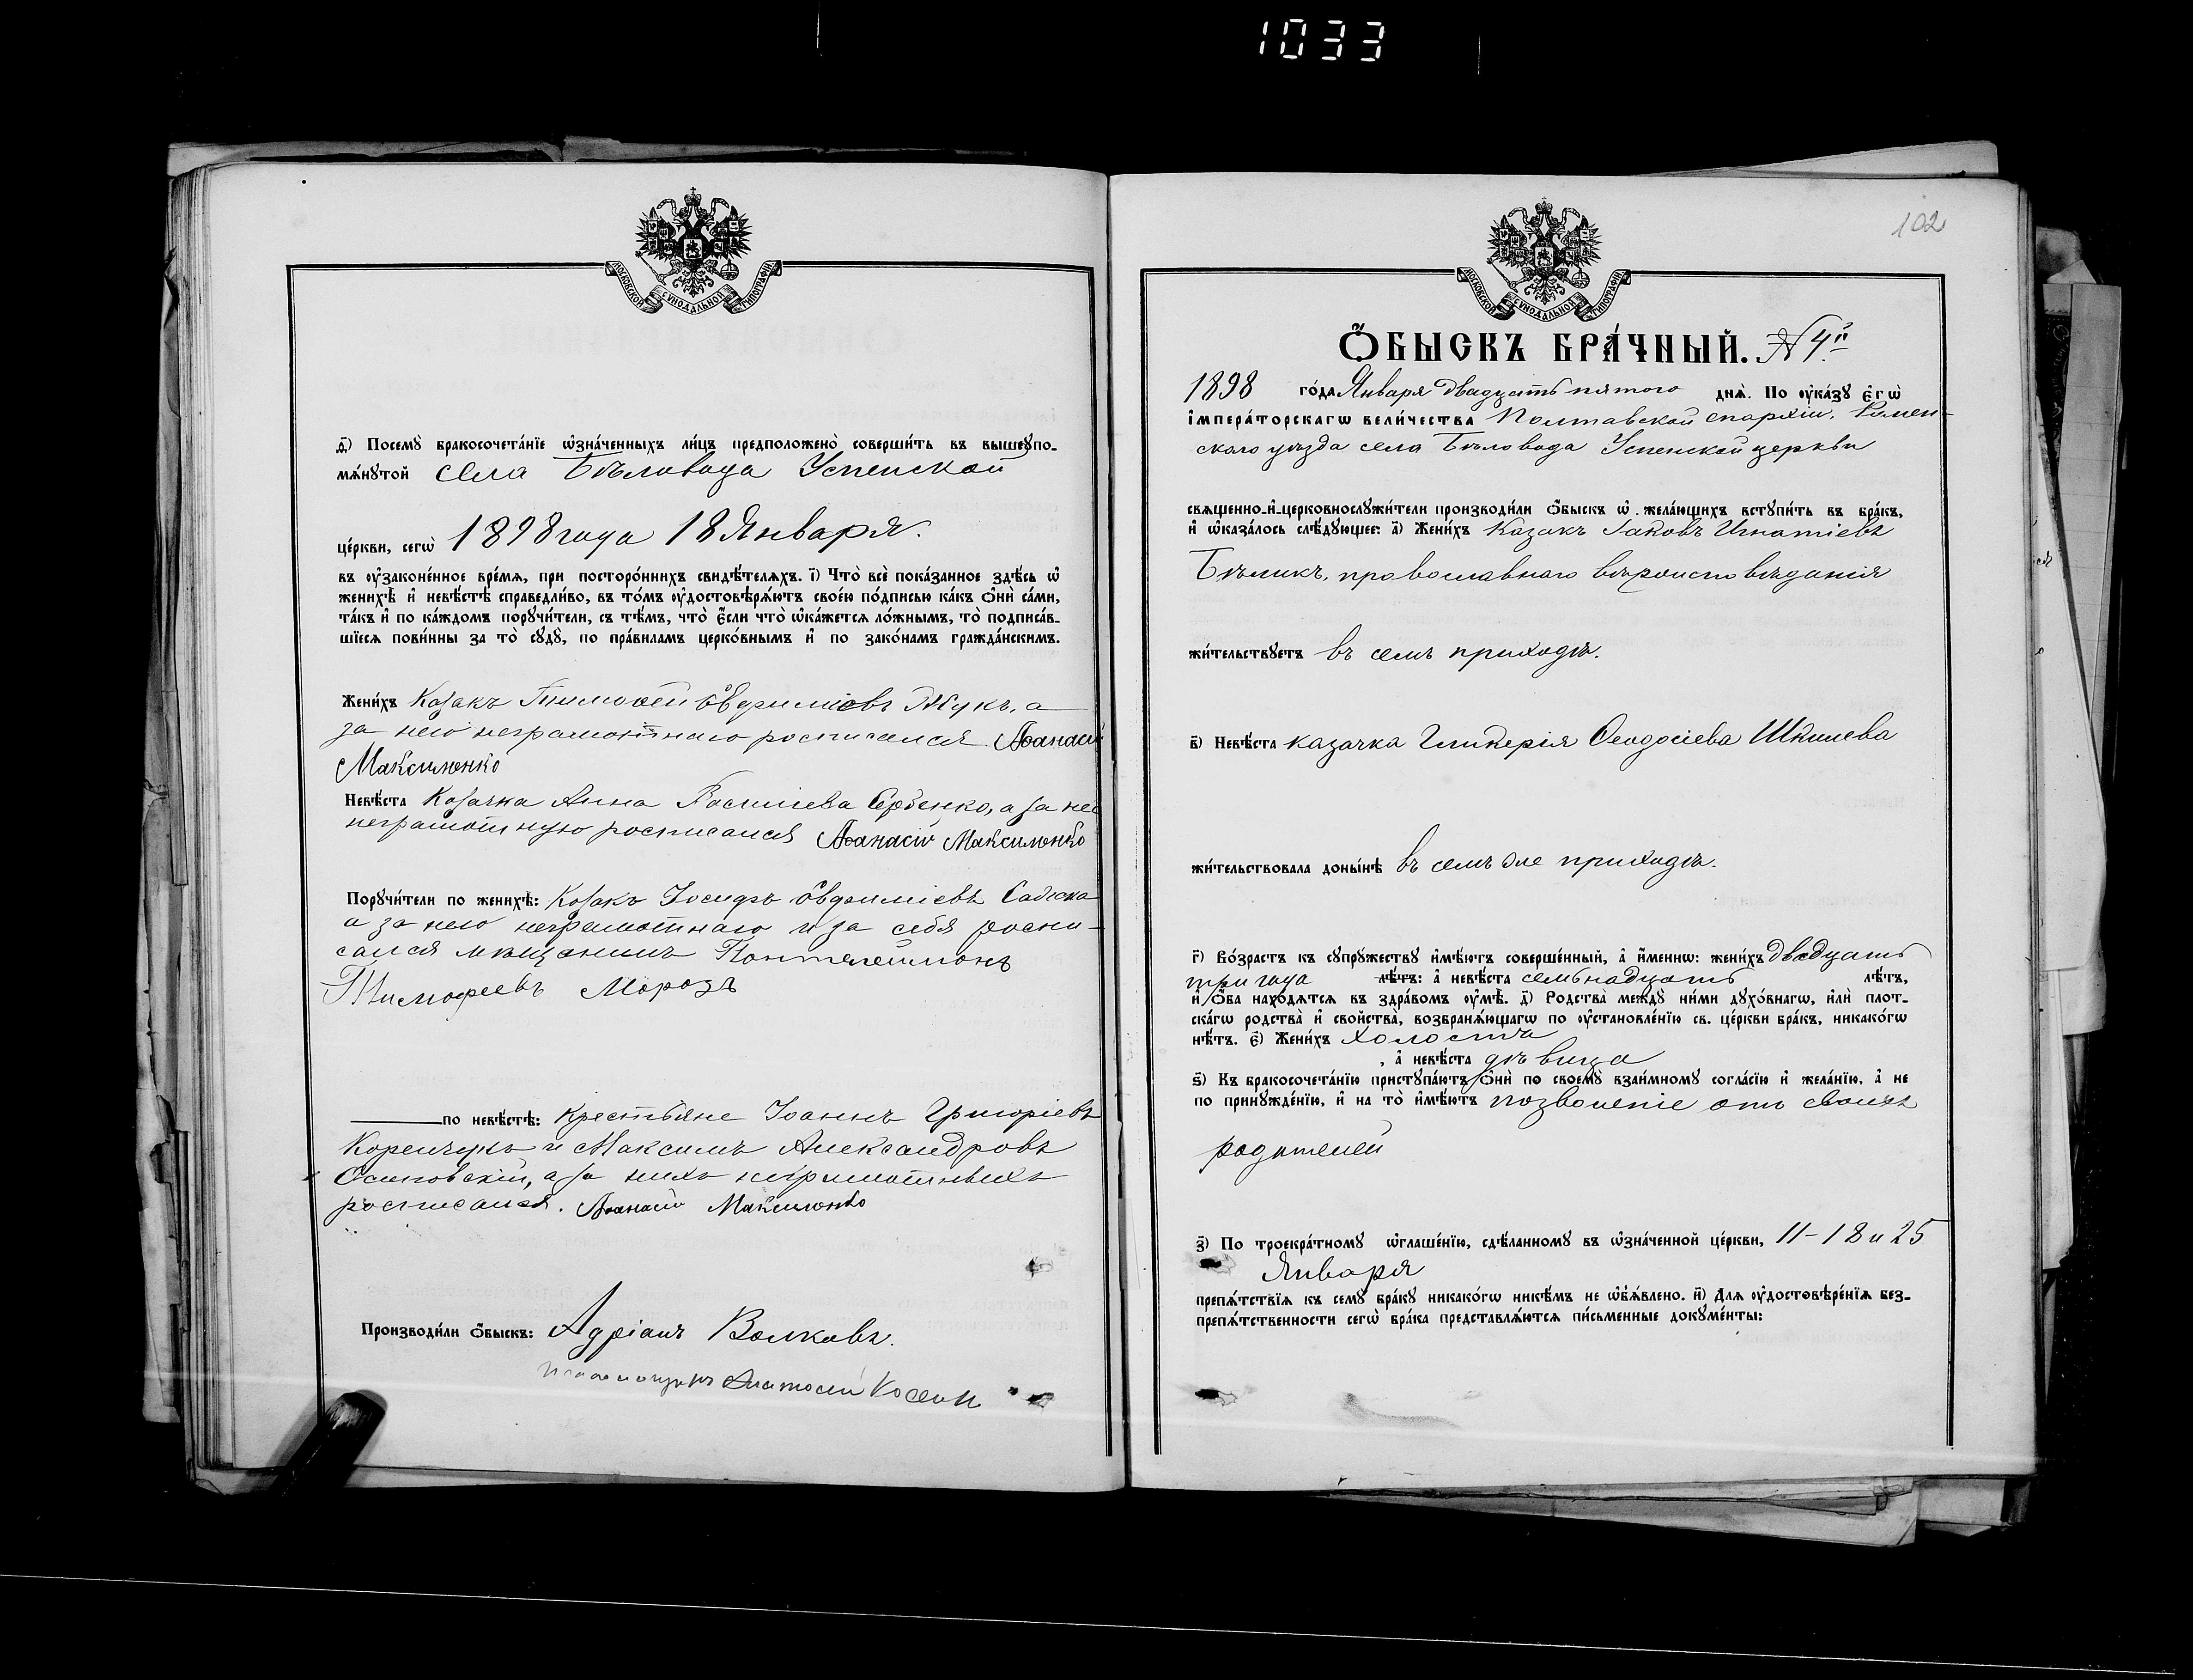 1033
МОСКОВСКОЙ СѴНОДАЛЬНОЙ ТИПОГРАФІИ
д҃) Посемꙋ бракосочета́нїе ѡ҆зна́ченныхъ ли́цъ предположено̀ соверши́ть въ вышеꙋпо-
мѧ́нꙋтой села Бѣловода Успенской
це́ркви, сегѡ̀ 1898 года 18 Января.
въ ᲂу҆зако́ненное вре́мѧ, при посторо́ннихъ свидѣ́телѧхъ. і҃) Что̀ всѐ пока́занное здѣ́сь ѡ҆
женихѣ̀ и҆ невѣ́стѣ справедли́во, въ то́мъ ᲂу҆достовѣрѧ́ютъ свое́ю по́дписью ка́къ ѻ҆нѝ са́ми,
та́къ и҆ по ка́ждомъ порꙋчи́тели, съ тѣ́мъ, что̀ є҆́сли что̀ ѡ҆ка́жетсѧ ло́жнымъ, то̀ подписа́в-
шїесѧ пови́нны за то̀ сꙋдꙋ̀, по пра́виламъ церко́внымъ и҆ по зако́намъ гражда́нскимъ.
Жени́хъ Козакъ Тимоѳей Евфиміевъ Жукъ, а
за него неграмотнаго росписался Аѳанасій
Максименко
Невѣ́ста Козачка Анна Васильева Сербенко, а за нее
неграмотную росписался Аѳанасій Максименко
Порꙋчи́тели по женихѣ̀: Козакъ Іосифъ Евфиміевъ
а за него неграмотнаго и за себя роспи-
сался мѣщанинъ Пантелеимонъ
Тимофеевъ Морозъ
по невѣ́стѣ: Крестьяне Іоаннъ Григоріевъ
и Максимъ Александровъ
Осиповскій, а за нихъ неграмотныхъ
росписался. Аѳанасій Максименко
Производи́ли ѻ҆́быскъ: Адріанъ Волковъ.
102
МОСКОВСКОЙ СѴНОДАЛЬНОЙ ТИПОГРАФІИ
Ѻ҆́БЫСКЪ БРА́ЧНЫЙ. № 4й
1898 го́да Января двадцать пятого днѧ̀. По ᲂу҆ка́зꙋ є҆гѡ̀
і҆мпера́торскагѡ вели́чества Полтавской епархіи, Ромен-
скаго уѣзда села Бѣловода Успенской церкви
свѧщенно-и҆-церковнослꙋжи́тели производи́ли ѻ҆́быскъ ѡ҆ жела́ющихъ встꙋпи́ть въ бра́къ,
и҆ ѡ҆каза́лось слѣ́дꙋющее: а҃) Жени́хъ Казакъ Іаковъ Игнатіевъ
Бѣликъ, православнаго вѣроисповѣданія
жи́тельствꙋетъ въ семъ приходѣ.
в҃) Невѣ́ста казачка Гликерія Ѳеодосіева Шкилева
жи́тельствовала доны́нѣ въ семъ же приходѣ.
г҃) Во́зрастъ къ сꙋпрꙋ́жествꙋ и҆мѣ́ютъ соверше́нный, а҆ и҆́меннѡ: жени́хъ двадцать
три года лѣ́тъ: а҆ невѣ́ста семьнадцать лѣ́тъ,
и҆ ѻ҆́ба нахо́дѧтсѧ въ здра́вомъ ᲂу҆мѣ̀. д҃) Родства̀ междꙋ̀ ни́ми дꙋхо́внагѡ, и҆лѝ плот-
ска́гѡ родства̀ и҆ свойства̀, возбранѧ́ющагѡ по ᲂу҆становле́нїю св. це́ркви бра́къ, никако́гѡ
нѣ́тъ. є҃) Жени́хъ холостъ
, а҆ невѣ́ста дѣвица
ѕ҃) Къ бракосочета́нїю пристꙋпа́ютъ ѻ҆нѝ по своемꙋ̀ взаи́мномꙋ согла́сїю и҆ жела́нїю, а҆ не
по принꙋжде́нїю, и҆ на то̀ и҆мѣ́ютъ позволеніе отъ своихъ
родителей
з҃) По троекра́тномꙋ ѡ҆глаше́нїю, сдѣ́ланномꙋ въ ѡ҆зна́ченной це́ркви, 11-18 и 25
Января
препѧ́тствїѧ къ семꙋ̀ бра́кꙋ никако́гѡ никѣ́мъ не ѡ҆б̾ѧ́влено. и҃) Длѧ ᲂу҆достовѣре́нїѧ без-
препѧ́тственности сегѡ̀ бра́ка представлѧ́ютсѧ пи́сьменные докꙋме́нты: